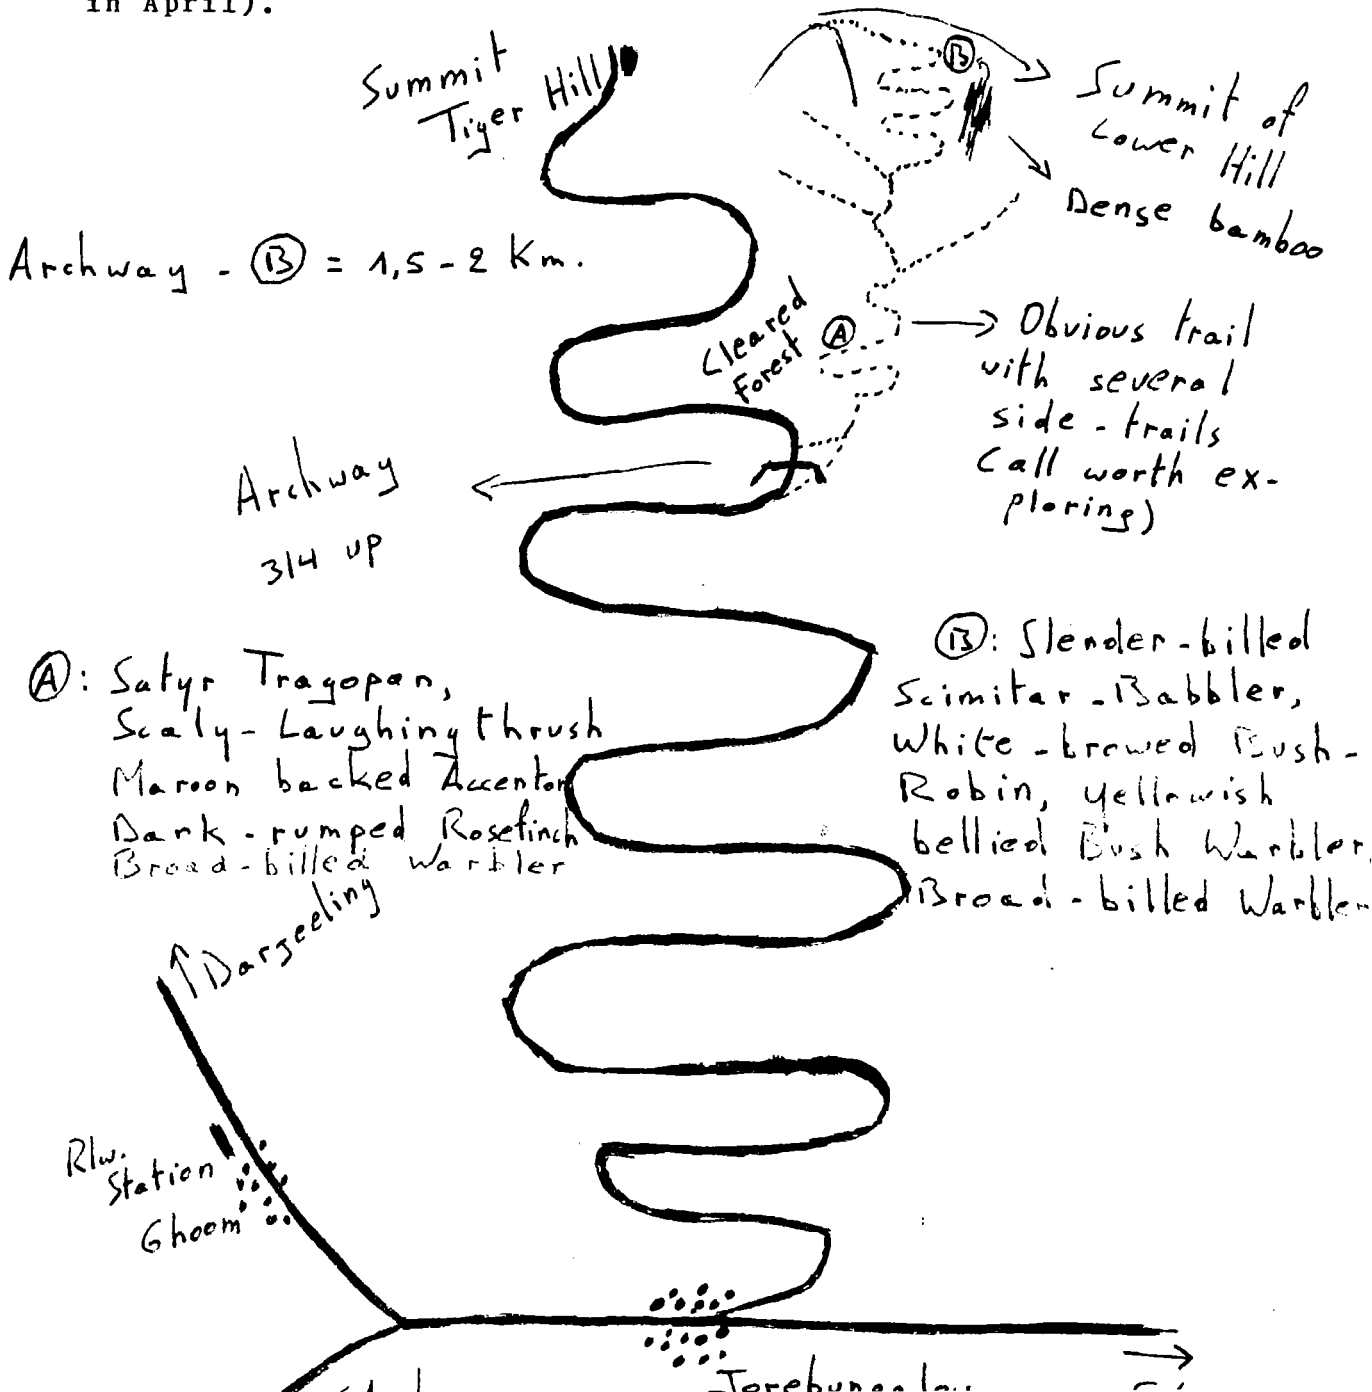 in April).
Summit
Tiger Hill
B
Summit of
Lower Hill
Dense bamboo
Archway - B = 1,5 - 2 Km.
Cleared
Forest
A
Obvious trail
with several
side - trails
(all worth ex-
ploring)
Archway
3/4 up
A: Satyr Tragopan,
Scaly - Laughing thrush
Maroon backed Accentor
Dark - rumped Rosefinch
Broad - billed Warbler
B: Slender - billed
Scimitar - Babbler,
White - browed Bush -
Robin, yellowish
bellied Bush Warbler,
Broad - billed Warbler
Darjeeling
Rlw.
Station
Ghoom
Jorebungalow